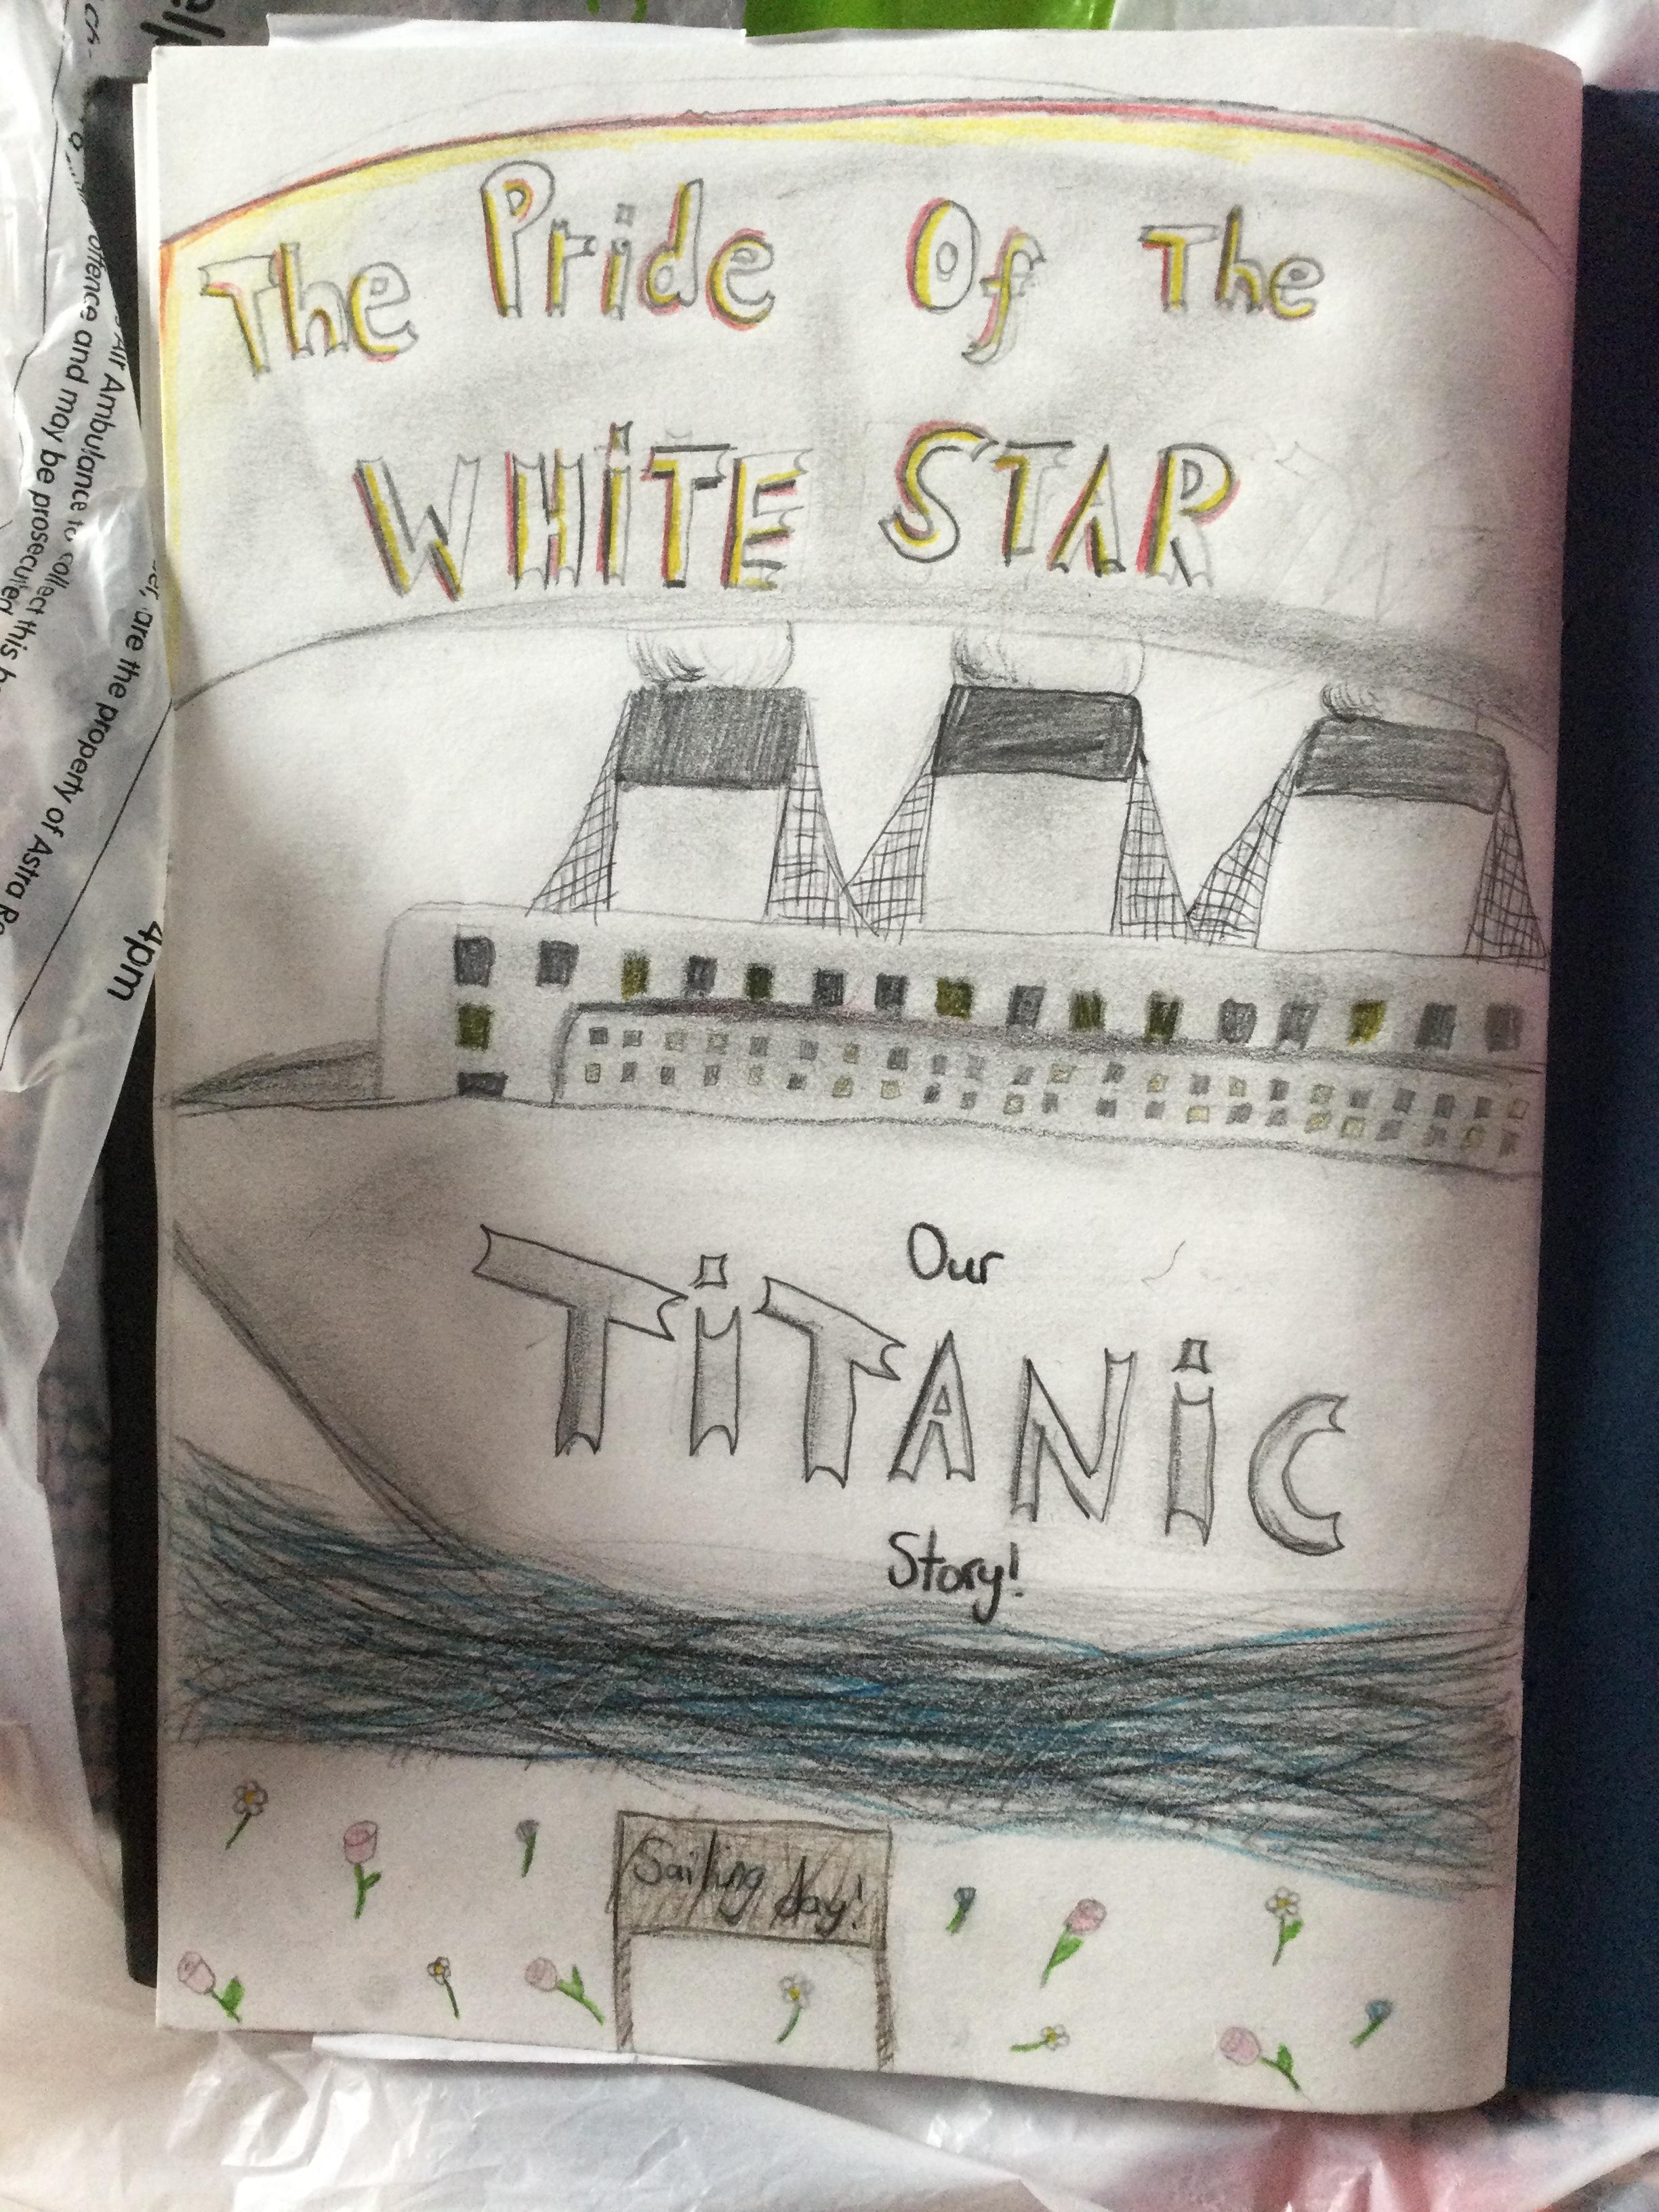 The Pride Of The
WHiTE STAR
Our
TiTANiC
Story!
Sailing day!
Air Ambulance to collect this
offence and may be prosecuted
are the property of Astra
4pm